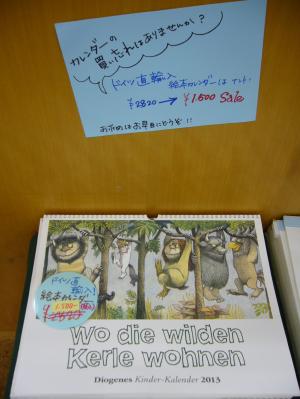 カレンダーの
買い忘れはありませんか?
ドイツ直輸入
絵本カレンダーは
¥2820→¥1,500 Sale
お求めはお早目にどうぞ!!
ドイツ直
輸入!
絵本カレンダー
1,500-
¥2820
Wo die wilden
Kerle wohnen
Diogenes Kinder-Kalender 2013